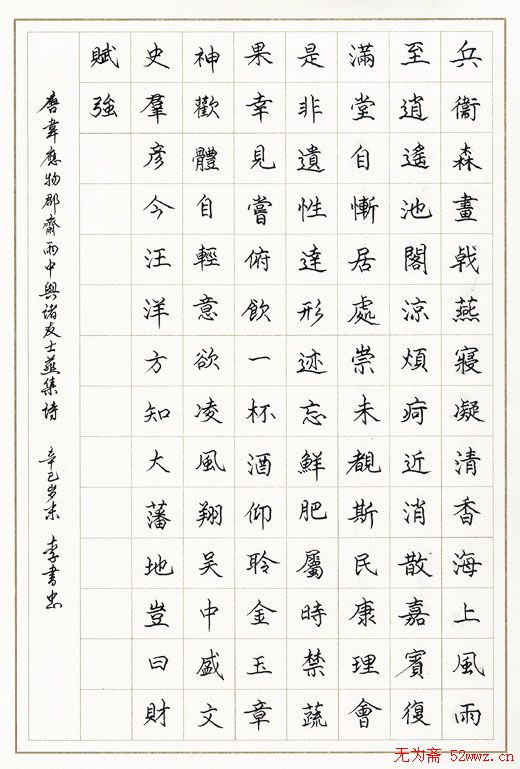 兵衞森畫戟燕寢凝清香海上風雨
至逍遙池閣涼煩疴近消散嘉賓復
滿堂自慚居處崇未覩斯民康理會
是非遺性達形迹忘鮮肥屬時禁蔬
果幸見嘗俯飲一杯酒仰聆金玉章
神歡體自輕意欲凌風翔吳中盛文
史羣彥今汪洋方知大藩地豈曰財
賦強
唐韋應物郡齋雨中與諸友士燕集詩 辛巳岁末 李書忠
无为斋 52wwz.cn